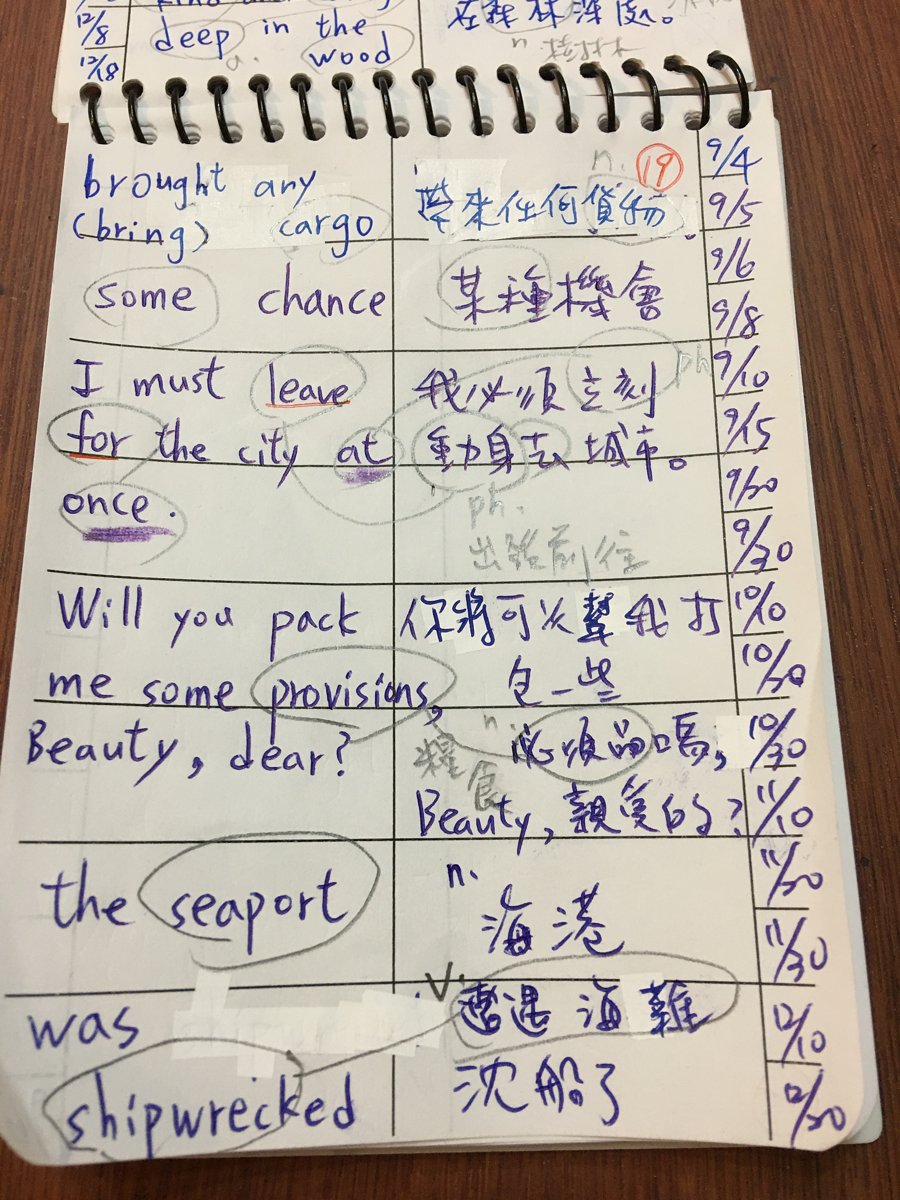 12/8
12/18
deep in the
wood
a.
在森林深處。
n. 森林
brought any
(bring) cargo
n.
19
帶來任何貨物.
some chance
某種機會
I must leave
for the city at
once.
我必須立刻
ph
動身去城市。
ph.
出發前往
Will you pack
me some provisions,
Beauty, dear?
你將可以幫我打
包一些
n.
必須品嗎,
糧食
Beauty, 親愛的?
the seaport
n.
海港
was
shipwrecked
v.
遭遇海難
沈船了
9/4
9/5
9/6
9/8
9/10
9/15
9/20
9/30
10/10
10/20
10/30
11/10
11/20
11/30
12/10
12/20